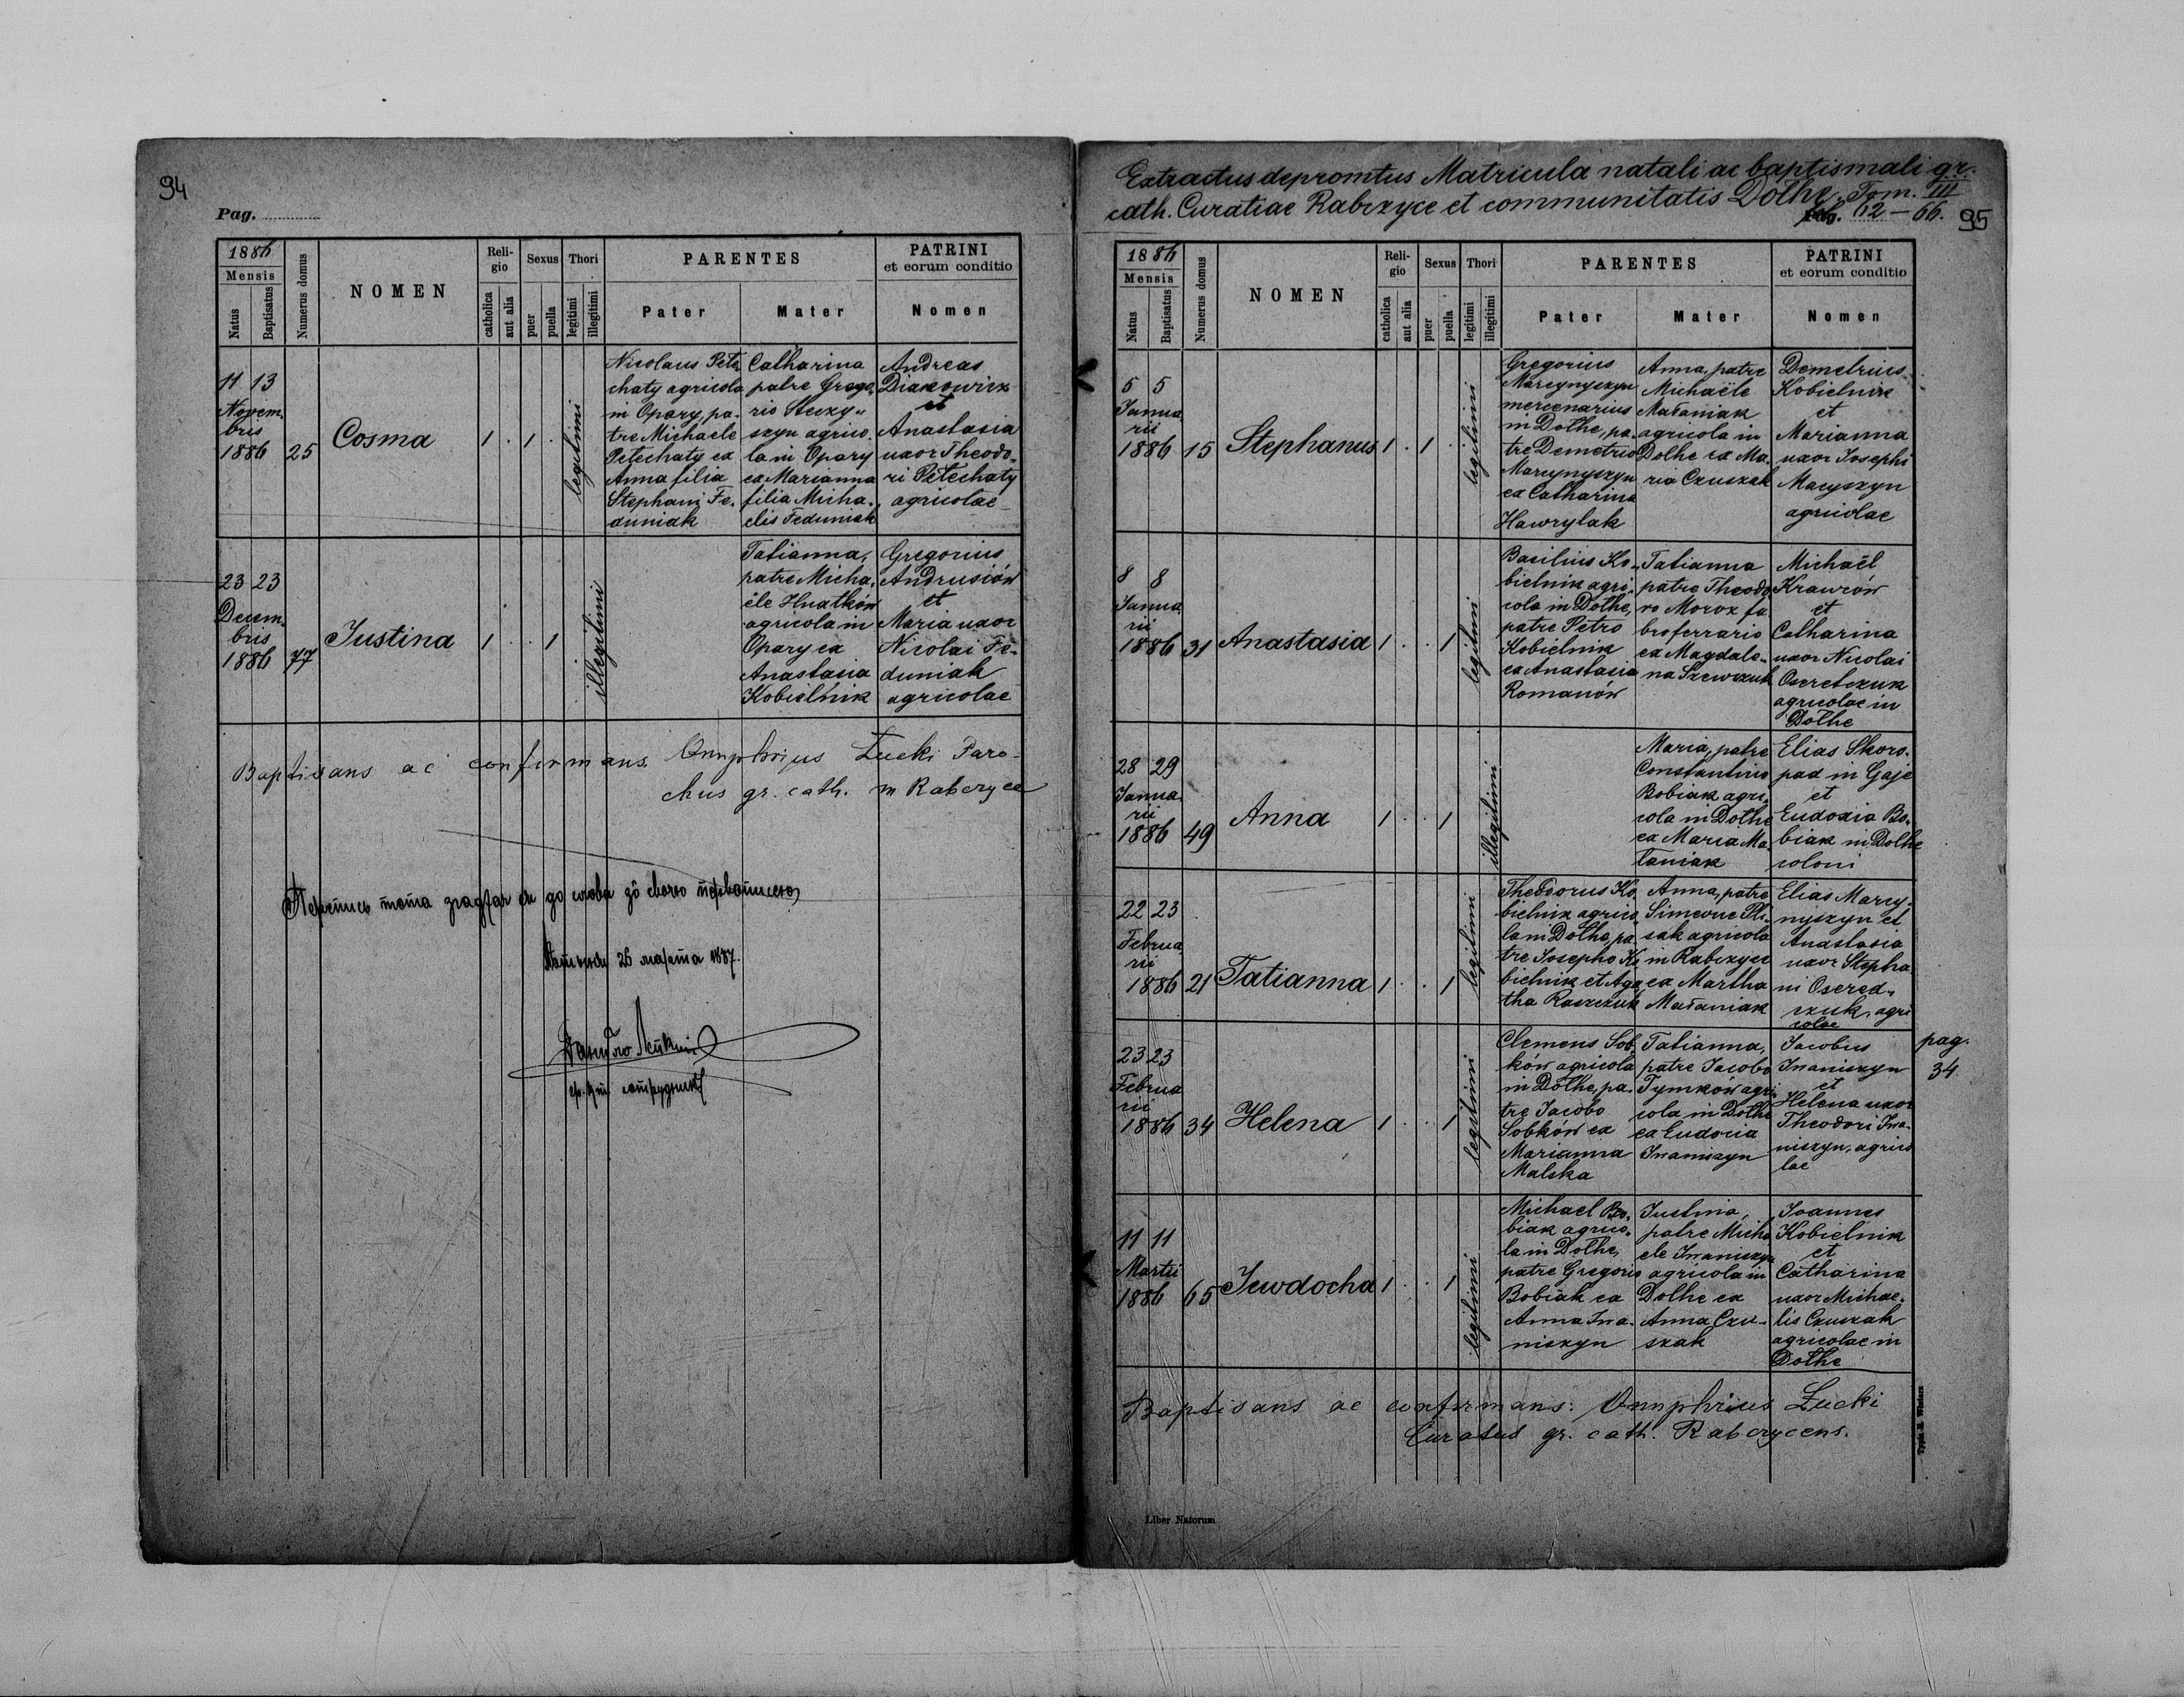 94
Pag.
1886
Mensis
Natus
Baptisatus
Numerus domus
NOMEN
Religio
catholica
aut alia
Sexus
puer
puella
Thori
legitimi
illegitimi
PARENTES
Pater
Mater
PATRINI
et eorum conditio
Nomen
11 13
Novem.
bris
1886
25
Cosma
1 . 1 .
legitimi
Nicolaus Pete
chaty agricola
in Opary, pa.
tre Michaele
Petechaty ex
Anna filia
Stephani Fe.
duniak
Catharina
patre Grego.
rio Steczy
szyn agrico.
la in Opary
ex Marianna
filia Micha.
elis Feduniak
Andreas
Diakowicz
et
Anastasia
uxor Theodo.
ri Petechaty
agricolae
23 23
Decem.
bris
1886
77
Justina
1 . . 1
illegitimi
Tatianna,
patre Micha.
ële Hnatków
agricola in
Opary ex
Anastasia
Kobielnik
Gregorius
Andrusiów
et
Maria uxor
Nicolai Fe-
duniak
agricolae
Baptisans ac confirmans. Onuphrius Łucki Paro-
chus gr. cath. in Rabczyce
25 марта 1887.
сотрудник
Extractus depromtus Matricula natali ac baptismali gr.
cath. Curatiae Rabczyce et communitatis Dołhe, Tom. III
Pag. 62 — 66.
95
1886
Mensis
Natus
Baptisatus
Numerus domus
NOMEN
Religio
catholica
aut alia
Sexus
puer
puella
Thori
legitimi
illegitimi
PARENTES
Pater
Mater
PATRINI
et eorum conditio
Nomen
5 5
Janua
rii
1886
15
Stephanus
1 . 1 .
legitimi
Gregorius
Marcynyszyn
mercenarius
in Dołhe, pa.
tre Demetrio
Marcynyszyn
ex Catharina
Hawrylak
Anna, patre
Michaële
Małaniak
agricola in
Dołhe ex Ma.
ria Czuszak
Demetrius
Kobielnik
et
Marianna
uxor Josephi
Macyszyn
agricolae
8 8
Janua
rii
1886
31
Anastasia
1 . . 1
legitimi
Basilius Ko.
bielnik agri.
cola in Dołhe,
patre Petro
Kobielnik
ex Anastasia
Romanów
Tatianna
patre Theodo
ro Moroz fa
bro ferrario
ex Magdale.
na Szewczuk
Michaël
Krawców
et
Catharina
uxor Nicolai
Oseretczuk
agricolae in
Dołhe
28 29
Janua.
rii
1886
49
Anna
1 . . 1
illegitimi
Maria, patre
Constantino
Bobiak agri.
cola in Dołhe
ex Maria Ma
łaniak
Elias Skoro.
pad in Gaje
et
Eudoxia Bo.
biak in Dołhe
coloni
22 23
Februa
rii
1886
21
Tatianna
1 . . 1
legitimi
Theodorus Ko.
bielnik agrico
la in Dołhe, pa.
tre Josepho Ko
bielnik et Aga
tha Raszczuk
Anna, patre
Simeone Pli.
sak agricola
in Rabczyce
ex Martha
Małaniak
Elias Marcy.
nyszyn et
Anastasia
uxor Stepha
ni Osered.
czuk, agri
colae
23 23
Februa
rii
1886
34
Helena
1 . . 1
legitimi
Clemens Sob.
ków agricola
in Dołhe, pa.
tre Jacobo
Sobków ex
Marianna
Malska
Tatianna,
patre Jacobo
Tymków agri.
cola in Dołhe
ex Eudocia
Iwaniszyn
Jacobus
Iwaniszyn
et
Helena uxor
Theodori Iwa.
niszyn, agrico
lae
pag.
34.
11 11
Martii
1886
65
Jewdocha
1 . . 1
legitimi
Michael Bo.
biak agrico.
la in Dołhe,
patre Gregorio
Bobiak ex
Anna Iwa.
niszyn
Justina,
patre Micha
ele Iwaniszyn
agricola in
Dołhe ex
Anna Czu-
szak
Joannes
Kobielnik
et
Catharina
uxor Michae.
lis Czuszak
agricolae in
Dołhe
Baptisans ac confirmans: Onuphrius Łucki
Curatus gr. cath. Rabczycens.
Liber Natorum